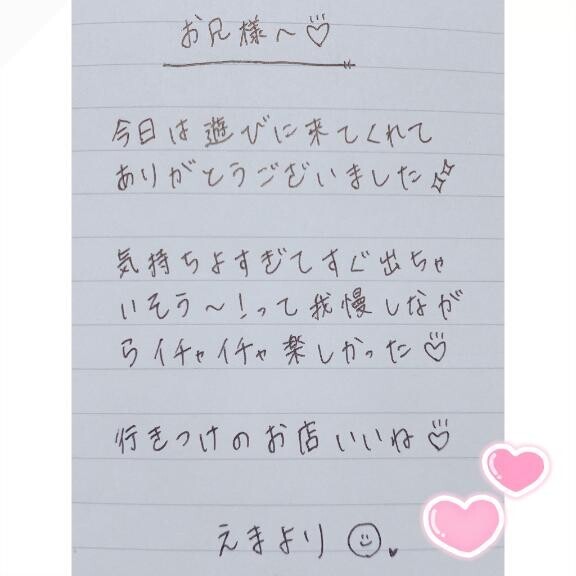 お兄様へ♡
今日は遊びに来てくれて
ありがとうございました✨
気持ちよすぎてすぐ出ちゃ
いそう〜!って我慢しなが
らイチャイチャ楽しかった♡
行きつけのお店いいね♡
えまより☺♥